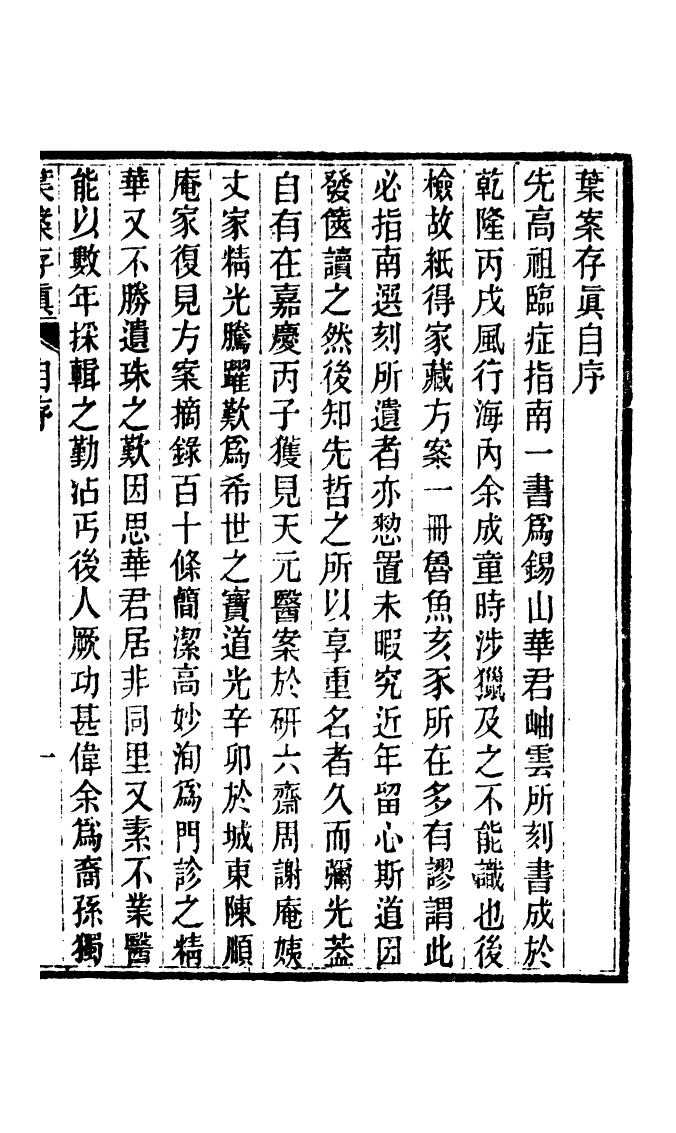 葉案存眞自序
先高祖臨症指南一書爲錫山華君岫雲所刻書成於
乾隆丙戌風行海內余成童時涉獵及之不能識也後
檢故紙得家藏方案一冊魯魚亥豕所在多有謬謂此
必指南選刻所遺者亦愸置未暇究近年留心斯道因
發篋讀之然後知先哲之所以享重名者久而彌光葢
自有在嘉慶丙子獲見天元醫案於研六齋周謝庵姨
丈家精光騰躍歎爲希世之寶道光辛卯於城東陳順
庵家復見方案摘錄百十條簡潔高妙洵爲門診之精
華又不勝遺珠之歎因思華君居非同里又素不業醫
能以數年採輯之勤沾丐後人厥功甚偉余爲裔孫獨
葉案存眞 自序 一